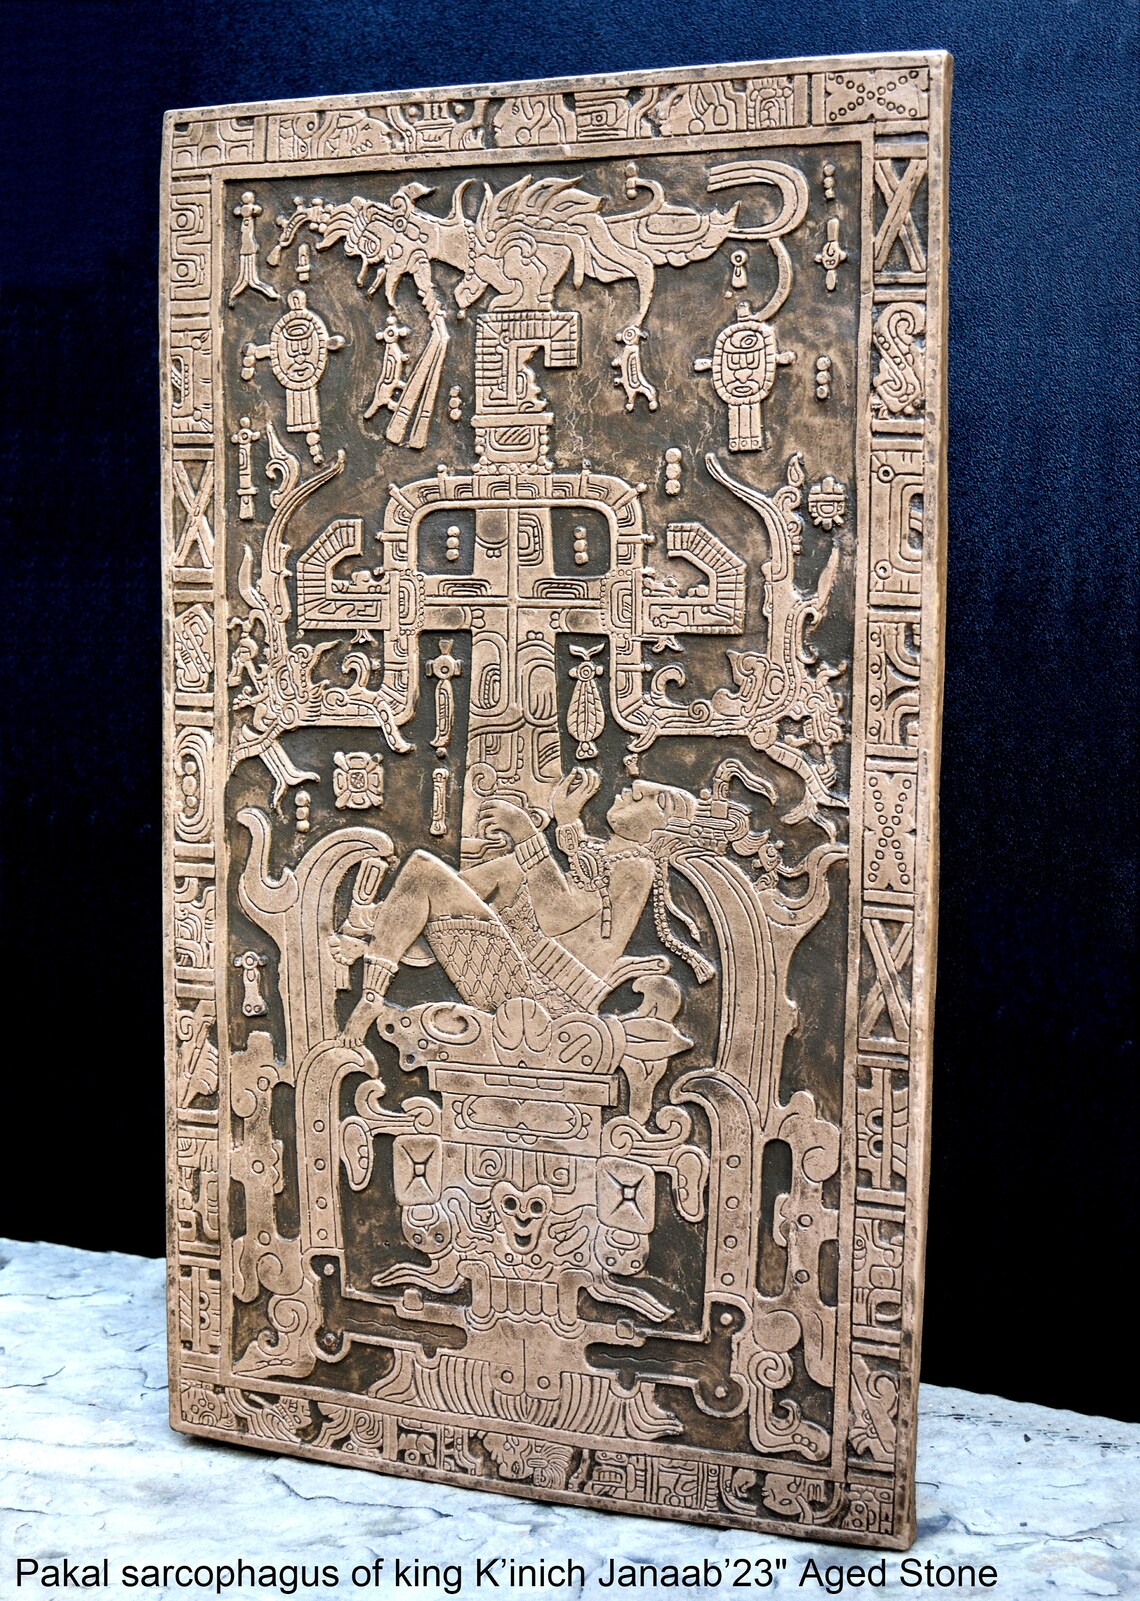 Pakal sarcophagus of king K’inich Janaab’23" Aged Stone